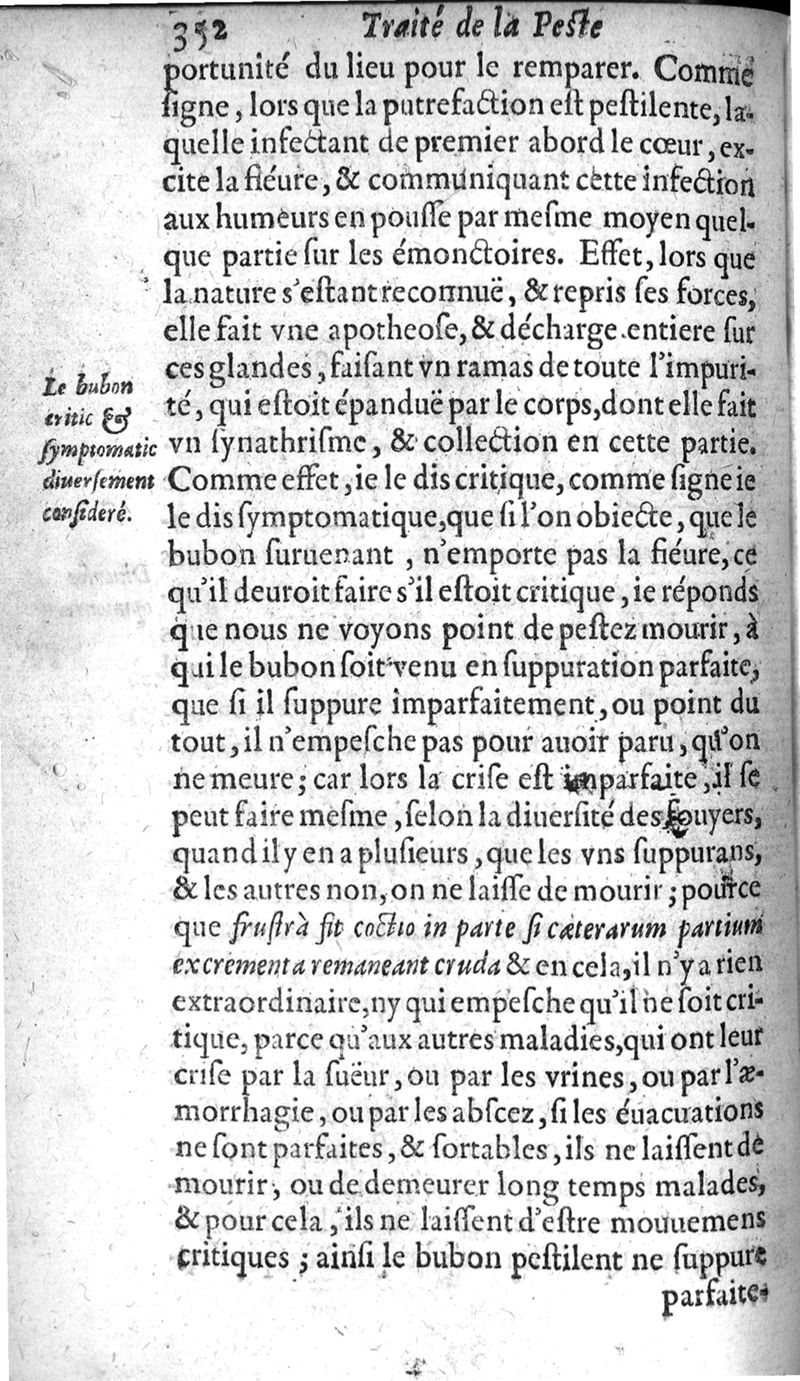 352 Traité de la Peste
portunité du lieu pour le remparer. Comme
ſigne, lors que la putrefaction eſt peſtilente, la-
quelle infectant de premier abord le cœur, ex-
cite la fiéure, & communiquant cette infection
aux humeurs en pouſſe par meſme moyen quel-
que partie ſur les émonctoires. Effet, lors que
la nature s'eſtant reconnuë, & repris ſes forces,
elle fait vne apotheoſe, & décharge entiere ſur
ces glandes, faiſant vn ramas de toute l'impuri-
té, qui eſtoit épanduë par le corps, dont elle fait
vn ſynathriſme, & collection en cette partie.
Comme effet, ie le dis critique, comme ſigne ie
le dis ſymptomatique, que ſi l'on obiecte, que le
bubon ſuruenant, n'emporte pas la fiéure, ce
qu'il deuroit faire s'il eſtoit critique, ie réponds
que nous ne voyons point de peſtez mourir, à
qui le bubon ſoit venu en ſuppuration parfaite,
que ſi il ſuppure imparfaitement, ou point du
tout, il n'empeſche pas pour auoir paru, qu'on
ne meure; car lors la criſe eſt imparfaite, il ſe
peut faire meſme, ſelon la diuerſité des fouyers,
quand il y en a pluſieurs, que les vns ſuppurans,
& les autres non, on ne laiſſe de mourir; pource
que fruſtrà fit coctio in parte ſi cæterarum partium
excrementa remaneant cruda & en cela, il n'y a rien
extraordinaire, ny qui empeſche qu'il ne ſoit cri-
tique, parce qu'aux autres maladies, qui ont leur
criſe par la ſuëur, ou par les vrines, ou par l'æ-
morrhagie, ou par les abſcez, ſi les éuacuations
ne ſont parfaites, & ſortables, ils ne laiſſent de
mourir, ou de demeurer long temps malades,
& pour cela, ils ne laiſſent d'eſtre mouuemens
critiques; ainſi le bubon peſtilent ne ſuppure
parfaite-
Le bubon
critic &
ſymptomatic
diuerſement
conſideré.